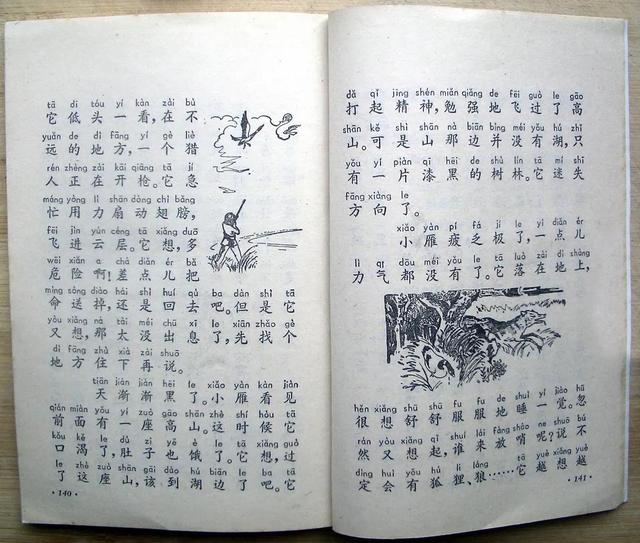 tā dī tóu yí kàn zài bù
它低头一看，在不
yuǎn de dì fāng yí gè liè
远的地方，一个猎
rén zhèng zài kāi qiāng tā jí
人正在开枪。它急
máng yòng lì shān dòng chì bǎng
忙用力扇动翅膀，
fēi jìn yún céng tā xiǎng duō
飞进云层。它想，多
wēi xiǎn a chà diǎn ér bǎ
危险啊！差点儿把
mìng sòng diào hái shì huí qù ba dàn shì tā
命送掉，还是回去吧。但是它
yòu xiǎng nà tài méi chū xī le xiān zhǎo gè
又想，那太没出息了，先找个
dì fāng zhù xià zài shuō
地方住下再说。
tiān jiàn jiàn hēi le xiǎo yàn kàn jiàn
天渐渐黑了。小雁看见
qián miàn yǒu yí zuò gāo shān zhè shí hòu tā
前面有一座高山。这时候它
kǒu kě le dù zi yě è le tā xiǎng guò
口渴了，肚子也饿了。它想，过
le zhè zuò shān gāi dào hú biān le ba tā
了这座山，该到湖边了吧。它
·140·
dǎ qǐ jīng shén miǎn qiǎng de fēi guò le gāo
打起精神，勉强地飞过了高
shān kě shì shān nà biān bìng méi yǒu hú zhǐ
山。可是山那边并没有湖，只
yǒu yí piàn qī hēi de shù lín tā mí shī
有一片漆黑的树林。它迷失
fāng xiàng le
方向了。
xiǎo yàn pí fá jí le yì diǎn ér
小雁疲乏极了，一点儿
lì qì dōu méi yǒu le tā luò zài dì shàng
力气都没有了。它落在地上，
hěn xiǎng shū shū fu fu de shuì yí jiào hū
很想舒舒服服地睡一觉。忽
rán yòu xiǎng qǐ shuí lái fàng shào ne shuō bú
然又想起，谁来放哨呢？说不
dìng huì yǒu hú li láng tā yuè xiǎng yuè
定会有狐狸、狼……它越想越
·141·